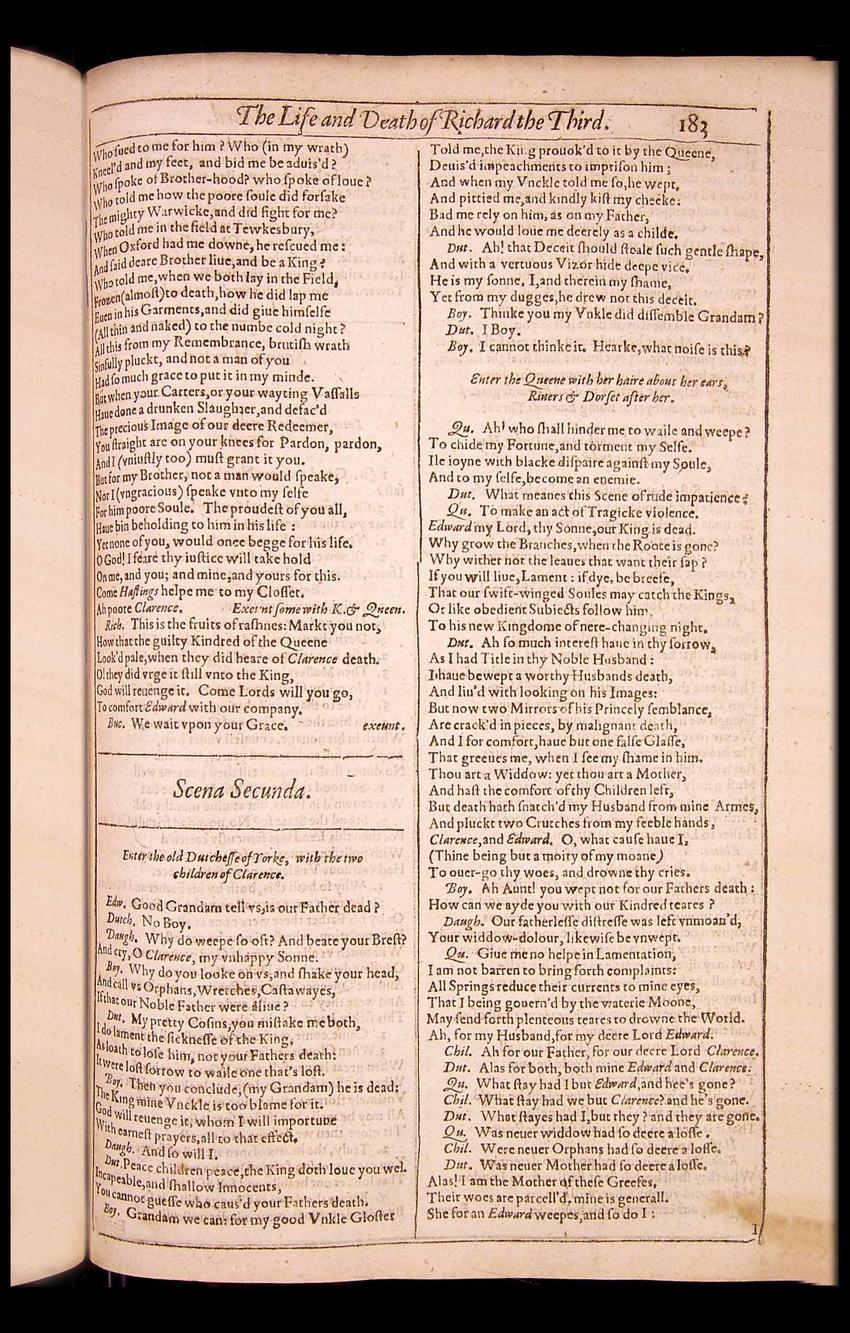 The Life and Death of Richard the Third. 183
Who sued to me for him? Who (in my wrath)
Kneel'd and my feet, and bid me be aduis'd?
Who spoke of Brother-hood? who spoke of loue?
Who told me how the poore soule did forsake
The mighty Warwicke, and did fight for me?
Who told me in the field at Tewkesbury,
When Oxford had me downe, he rescued me:
And said deare Brother liue, and be a King?
Who told me, when we both lay in the Field,
Frozen (almost) to death, how he did lap me
Euen in his Garments, and did giue himselfe
(All thin and naked) to the numbe cold night?
All this from my Remembrance, brutish wrath
Sinfully pluckt, and not a man of you
Had so much grace to put it in my minde.
But when your Carters, or your wayting Vassalls
Haue done a drunken Slaughter, and defac'd
The precious Image of our deere Redeemer,
You straight are on your knees for Pardon, pardon,
And I (vniustly too) must grant it you.
But for my Brother, not a man would speake,
Nor I (vngracious) speake vnto my selfe
For him poore Soule. The proudest of you all,
Haue bin beholding to him in his life:
Yet none of you, would once begge for his life.
O God! I feare thy iustice will take hold
On me, and you; and mine, and yours for this.
Come Hastings helpe me to my Closset.
Ah poore Clarence. Exeunt some with K. & Queen.
Rich. This is the fruits of rashnes: Markt you not,
How that the guilty Kindred of the Queene
Look'd pale, when they did heare of Clarence death.
O! they did vrge it still vnto the King,
God will reuenge it. Come Lords will you go,
To comfort Edward with our company.
Buc. We wait vpon your Grace. exeunt.
Scena Secunda.
Enter the old Dutchesse of Yorke, with the two
children of Clarence.
Edw. Good Grandam tell vs, is our Father dead?
Dutch. No Boy.
Daugh. Why do weepe so oft? And beate your Brest?
And cry, O Clarence, my vnhappy Sonne.
Boy. Why do you looke on vs, and shake your head,
And call vs Orphans, Wretches, Castawayes,
If that our Noble Father were aliue?
Dut. My pretty Cosins, you mistake me both,
I do lament the sicknesse of the King,
As loath to lose him, not your Fathers death:
It were lost sorrow to waile one that's lost.
Boy. Then you conclude, (my Grandam) he is dead:
The King mine Vnckle is too blame for it.
God will reuenge it, whom I will importune
With earnest prayers, all to that effect.
Daugh. And so will I.
Dut. Peace children peace, the King doth loue you wel.
Incapeable, and shallow Innocents,
You cannot guesse who caus'd your Fathers death.
Boy. Grandam we can: for my good Vnkle Gloster
Told me, the King prouok'd to it by the Queene,
Deuis'd impeachments to imprison him;
And when my Vnckle told me so, he wept,
And pittied me, and kindly kist my cheeke:
Bad me rely on him, as on my Father,
And he would loue me deerely as a childe.
Dut. Ah! that Deceit should steale such gentle shape,
And with a vertuous Vizor hide deepe vice.
He is my sonne, I, and therein my shame,
Yet from my dugges, he drew not this deceit.
Boy. Thinke you my Vnkle did dissemble Grandam?
Dut. I Boy.
Boy. I cannot thinke it. Hearke, what noise is this?
Enter the Queene with her haire about her ears,
Riuers & Dorset after her.
Qu. Ah! who shall hinder me to waile and weepe?
To chide my Fortune, and torment my Selfe.
Ile ioyne with blacke dispaire against my Soule,
And to my selfe, become an enemie.
Dut. What meanes this Scene of rude impatience?
Qu. To make an act of Tragicke violence.
Edward my Lord, thy Sonne, our King is dead.
Why grow the Branches, when the Roote is gone?
Why wither not the leaues that want their sap?
If you will liue, Lament: if dye, be breefe,
That our swift-winged Soules may catch the Kings,
Or like obedient Subiects follow him,
To his new Kingdome of nere-changing night.
Dut. Ah so much interest haue in thy sorrow,
As I had Title in thy Noble Husband:
I haue bewept a worthy Husbands death,
And liu'd with looking on his Images:
But now two Mirrors of his Princely semblance,
Are crack'd in pieces, by malignant death,
And I for comfort, haue but one false Glasse,
That greeues me, when I see my shame in him.
Thou art a Widdow: yet thou art a Mother,
And hast the comfort of thy Children left,
But death hath snatch'd my Husband from mine Armes,
And pluckt two Crutches from my feeble hands,
Clarence, and Edward. O, what cause haue I,
(Thine being but a moity of my moane)
To ouer-go thy woes, and drowne thy cries.
Boy. Ah Aunt! you wept not for our Fathers death:
How can we ayde you with our Kindred teares?
Daugh. Our fatherlesse distresse was left vnmoan'd,
Your widdow-dolour, likewise be vnwept.
Qu. Giue me no helpe in Lamentation,
I am not barren to bring forth complaints:
All Springs reduce their currents to mine eyes,
That I being gouern'd by the waterie Moone,
May send forth plenteous teares to drowne the World.
Ah, for my Husband, for my deere Lord Edward.
Chil. Ah for our Father, for our deere Lord Clarence.
Dut. Alas for both, both mine Edward and Clarence.
Qu. What stay had I but Edward, and hee's gone?
Chil. What stay had we but Clarence? and he's gone.
Dut. What stayes had I, but they? and they are gone.
Qu. Was neuer widdow had so deere a losse.
Chil. Were neuer Orphans had so deere a losse.
Dut. Was neuer Mother had so deere a losse.
Alas! I am the Mother of these Greefes,
Their woes are parcell'd, mine is generall.
She for an Edward weepes, and so do I:
I